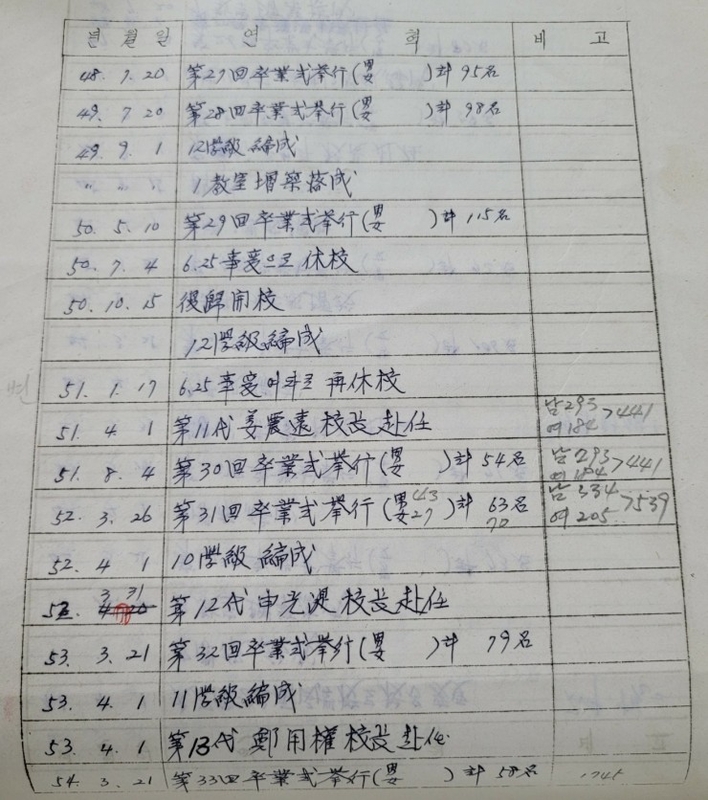 년 월 일 연 혁 비 고
48. 7. 20 第27回 卒業式挙行(男女 )計 95名
49. 7 20 第28回 卒業式挙行(男女 )計 98名
49. 9. 1 12学級 編成
〃 〃 〃 1 教室 增築落成
50. 5. 10 第29回 卒業式挙行(男女 )計 115名
50. 7. 4 6.25 事変으로 休校
50. 10. 15 復歸開校
12学級 編成
51. 1. 17 6.25 事変여파로 再休校
51. 4. 1 第11代 姜震遠 校长 赴任 남293 여184 >441
51. 8. 4 第30回 卒業式挙行(男女 )計 54名 남293 여184 >441
52. 3. 26 第31回 卒業式挙行(男43女27 )計 63名 70 남334 여205 >539
52. 4 1 10学級 編成
52. 3 31 第12代 申光湜 校长赴任
53. 3. 21 第32回 卒業式挙行(男女 )計 79名
53. 4. 1 11学級編成
53. 4. 1 第13代 鄭用權 校长 赴任
54. 3. 21 第33回 卒業式挙行(男女 )計 58名